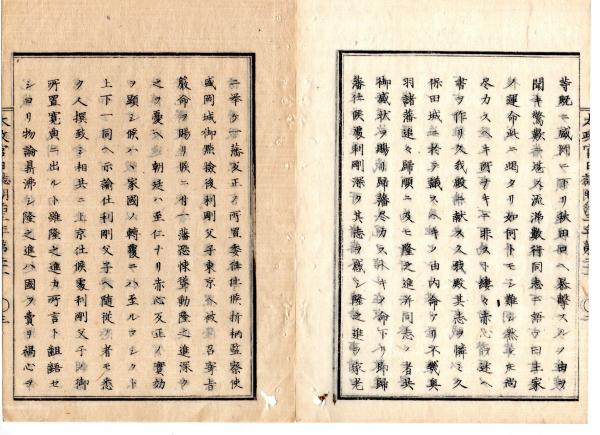 等既ニ盛岡ニ下リ秋田口ヘ暴撃スルノ由ヲ
聞キ驚歎流涕數行同志ニ語テ曰主家
ノ運命此ニ竭タリ如何トモシ難シ然トモ尚
尽力スヘキ所ナキニ非スト縷々赤心ヲ述ヘ
書ヲ作リ久我殿ニ献ス久我殿其志ヲ憐ミ久
保田城ニ於テ議スヘキノ由内命アリ不幾奥
羽諸藩追々歸順ニ及モ隆之進并同志ノ者共
御感状ヲ賜リ歸藩尽力スヘキノ命下リ即歸
藩仕候處利剛深ク其志ヲ感シ隆之進ヲ家老
ニ挙ケ一藩反正ノ所置委任仕候折柄監察使
盛岡城御點檢後利剛父子東京ヘ被爲召寄旨
嚴命ヲ賜リ候ニ付一藩恐悚聳動隆之進深ク
之ヲ憂ヘ朝廷ハ至仁ナリ赤心反正ノ實効
ヲ顕シ候ハヽ家國ノ轉覆ニハ至ルマシクト
上下一同ヘ示諭仕利剛父子ヘ隨從ノ者モ悉
ク人撰致シ相共ニ上京仕候處利剛父子ノ御
所置寛典ニ出ルト雖隆之進カ所言ト齟齬セ
シヨリ物論昇沸シ隆之進ハ國ヲ賣リ禍心ヲ